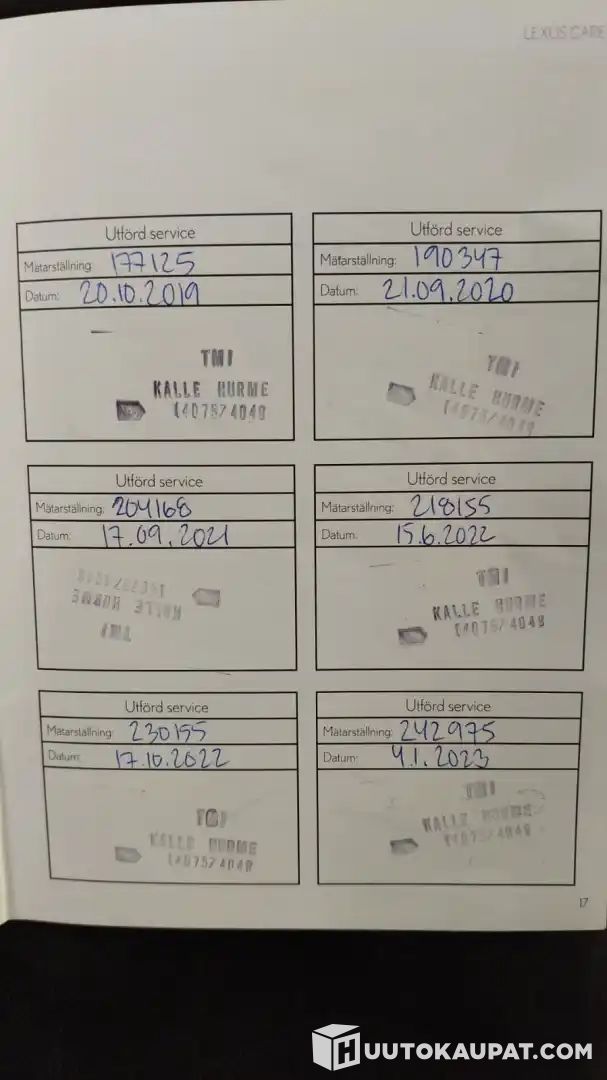 LEXUS CARE
Utförd service
Mätarställning: 177125
Datum: 20.10.2019
TMI
KALLE HURME
Utförd service
Mätarställning: 190347
Datum: 21.09.2020
TMI
KALLE HURME
Utförd service
Mätarställning: 204168
Datum: 17.09.2021
TMI
KALLE HURME
Utförd service
Mätarställning: 218155
Datum: 15.6.2022
TMI
KALLE HURME
Utförd service
Mätarställning: 230155
Datum: 17.10.2022
TMI
KALLE HURME
Utförd service
Mätarställning: 242975
Datum: 4.1.2023
TMI
KALLE HURME
17
HUUTOKAUPAT.COM